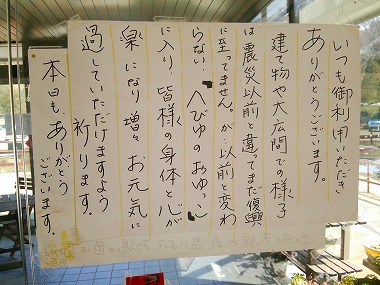 いつも御利用いただき
ありがとうございます。
建て物や大広間での様子
は震災以前と違ってまだ復興
に至ってません。が…以前と変わ
らない「へびゆのおゆっこ」
に入り、皆様の身体と心が
楽になり増々お元気に
過していただけますよう
祈ります。
本日もありがとう
ございます。